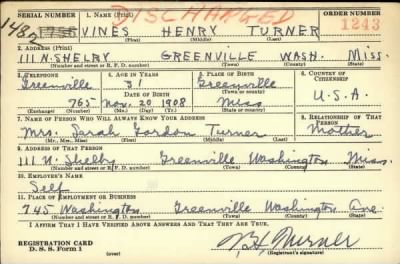 DISCHARGED
SERIAL NUMBER 1. NAME (Print) ORDER NUMBER
1482 VINES HENRY TURNER 1243
(First) (Middle) (Last)
2. ADDRESS (Print)
111 N. SHELBY GREENVILLE WASH. MISS.
(Number and street or R. F. D. number) (Town) (County) (State)
3. TELEPHONE 4. AGE IN YEARS 5. PLACE OF BIRTH 6. COUNTRY OF CITIZENSHIP
Greenville 31 Greenville
(Exchange) DATE OF BIRTH (Town or county) U.S.A.
765 Nov. 20 1908 Miss
(Number) (Mo.) (Day) (Yr.) (State or country)
7. NAME OF PERSON WHO WILL ALWAYS KNOW YOUR ADDRESS 8. RELATIONSHIP OF THAT PERSON
Mrs. Sarah Gordon Turner Mother
(Mr., Mrs., Miss) (First) (Middle) (Last)
9. ADDRESS OF THAT PERSON
111 N. Shelby Greenville Washington Miss.
(Number and street or R. F. D. number) (Town) (County) (State)
10. EMPLOYER'S NAME
Self
11. PLACE OF EMPLOYMENT OR BUSINESS
745 Washington Greenville Washington Ave.
(Number and street or R. F. D. number) (Town) (County) (State)
I AFFIRM THAT I HAVE VERIFIED ABOVE ANSWERS AND THAT THEY ARE TRUE.
REGISTRATION CARD
D. S. S. Form 1 (over) (Registrant's signature)